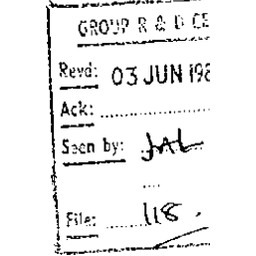 GROUP R & D CE
Revd: 03 JUN 198
Ack:
Seen by: JAL
File: 118.